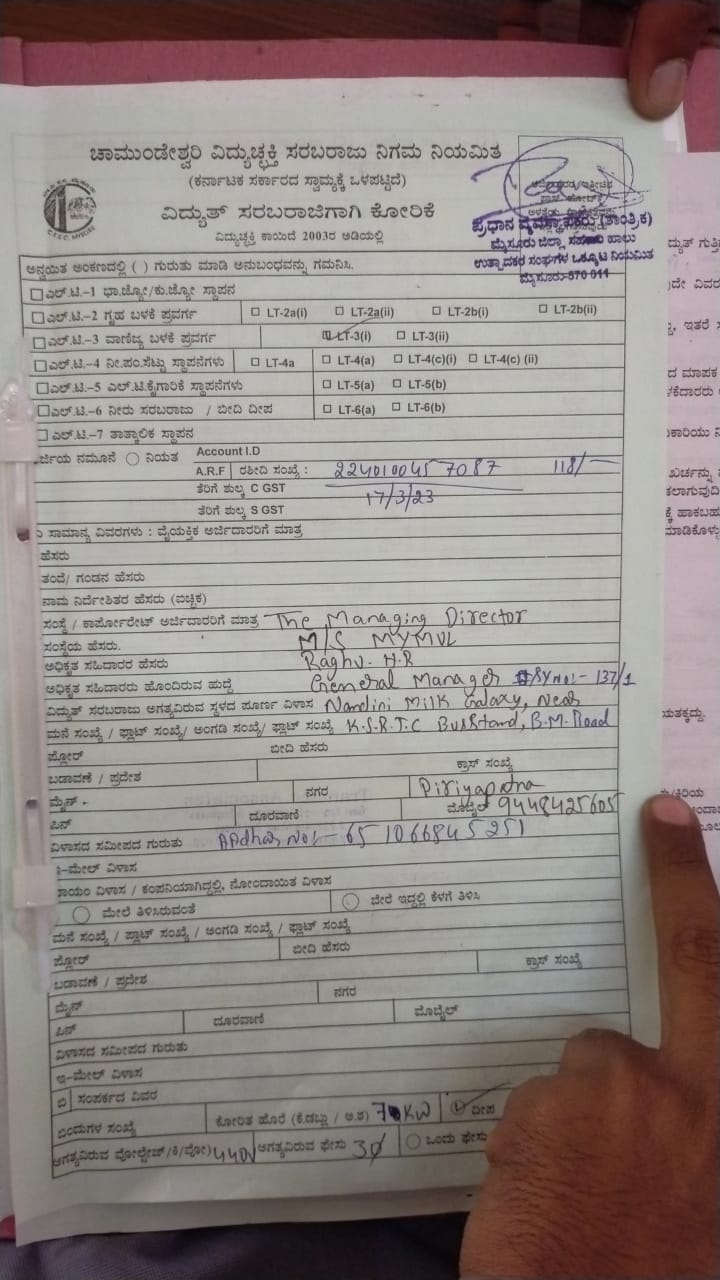 ಚಾಮುಂಡೇಶ್ವರಿ ವಿದ್ಯುಚ್ಛಕ್ತಿ ಸರಬರಾಜು ನಿಗಮ ನಿಯಮಿತ
(ಕರ್ನಾಟಕ ಸರ್ಕಾರದ ಸ್ವಾಮ್ಯಕ್ಕೆ ಒಳಪಟ್ಟಿದೆ)
ವಿದ್ಯುತ್ ಸರಬರಾಜಿಗಾಗಿ ಕೋರಿಕೆ
ವಿದ್ಯುಚ್ಛಕ್ತಿ ಕಾಯಿದೆ 2003ರ ಅಡಿಯಲ್ಲಿ
C.E.S.C. MYSORE
ಪ್ರಧಾನ ವ್ಯವಸ್ಥಾಪಕರು (ತಾಂತ್ರಿಕ)
ಮೈಸೂರು ಜಿಲ್ಲಾ ಸಹಕಾರ ಹಾಲು
ಉತ್ಪಾದಕರ ಸಂಘಗಳ ಒಕ್ಕೂಟ ನಿಯಮಿತ
ಮೈಸೂರು-570 011
ಅನ್ವಯಿತ ಅಂಕಣದಲ್ಲಿ ( ) ಗುರುತು ಮಾಡಿ ಅನುಬಂಧವನ್ನು ಗಮನಿಸಿ.
ಎಲ್.ಟಿ.–1 ಭಾ.ಜ್ಯೋ/ಕು.ಜ್ಯೋ ಸ್ಥಾಪನ
ಎಲ್.ಟಿ.–2 ಗೃಹ ಬಳಕೆ ಪ್ರವರ್ಗ LT-2a(i) LT-2a(ii) LT-2b(i) LT-2b(ii)
ಎಲ್.ಟಿ.–3 ವಾಣಿಜ್ಯ ಬಳಕೆ ಪ್ರವರ್ಗ LT-3(i) LT-3(ii)
ಎಲ್.ಟಿ.–4 ನೀ.ಪಂ.ಸೆಟ್ಟು ಸ್ಥಾಪನೆಗಳು LT-4a LT-4(a) LT-4(c)(i) LT-4(c) (ii)
ಎಲ್.ಟಿ.–5 ಎಲ್.ಟಿ.ಕೈಗಾರಿಕೆ ಸ್ಥಾಪನೆಗಳು LT-5(a) LT-5(b)
ಎಲ್.ಟಿ.–6 ನೀರು ಸರಬರಾಜು / ಬೀದಿ ದೀಪ LT-6(a) LT-6(b)
ಎಲ್.ಟಿ.–7 ತಾತ್ಕಾಲಿಕ ಸ್ಥಾಪನ
ರ್ಜಿಯ ನಮೂನೆ ನಿಯತ Account I.D
A.R.F ರಶೀದಿ ಸಂಖ್ಯೆ : 224010045 7087 118/—
ತೆರಿಗೆ ಶುಲ್ಕ C GST 17/3/23
ತೆರಿಗೆ ಶುಲ್ಕ S GST
ಸಾಮಾನ್ಯ ವಿವರಗಳು : ವೈಯಕ್ತಿಕ ಅರ್ಜಿದಾರರಿಗೆ ಮಾತ್ರ
ಹೆಸರು
ತಂದೆ/ ಗಂಡನ ಹೆಸರು
ನಾಮ ನಿರ್ದೇಶಿತರ ಹೆಸರು (ಐಚ್ಛಿಕ)
ಸಂಸ್ಥೆ / ಕಾರ್ಪೋರೇಟ್ ಅರ್ಜಿದಾರರಿಗೆ ಮಾತ್ರ The Managing Director
ಸಂಸ್ಥೆಯ ಹೆಸರು. M/S MYMUL
ಅಧಿಕೃತ ಸಹಿದಾರರ ಹೆಸರು Raghu. H.R
ಅಧಿಕೃತ ಸಹಿದಾರರು ಹೊಂದಿರುವ ಹುದ್ದೆ General Manager SY NO:- 137/1
ವಿದ್ಯುತ್ ಸರಬರಾಜು ಅಗತ್ಯವಿರುವ ಸ್ಥಳದ ಪೂರ್ಣ ವಿಳಾಸ Nandini Milk Galaxy, Near
ಮನೆ ಸಂಖ್ಯೆ / ಫ್ಲಾಟ್ ಸಂಖ್ಯೆ/ ಅಂಗಡಿ ಸಂಖ್ಯೆ/ ಫ್ಲಾಟ್ ಸಂಖ್ಯೆ K.S.R.T.C BusStand, B.M. Road
ಪ್ಲೋರ್ ಬೀದಿ ಹೆಸರು
ಬಡಾವಣೆ / ಪ್ರದೇಶ ಕ್ರಾಸ್ ಸಂಖ್ಯೆ
ಮೈನ್ ನಗರ Piriyapatna
ಪಿನ್ ದೂರವಾಣಿ ಮೊಬೈಲ್ 9448425605
ವಿಳಾಸದ ಸಮೀಪದ ಗುರುತು AAdhar No:- 65 1066845251
ಇ-ಮೇಲ್ ವಿಳಾಸ
ಾಯಂ ವಿಳಾಸ / ಕಂಪನಿಯಾಗಿದ್ದಲ್ಲಿ, ನೋಂದಾಯಿತ ವಿಳಾಸ
ಮೇಲೆ ತಿಳಿಸಿರುವಂತೆ ಬೇರೆ ಇದ್ದಲ್ಲಿ ಕೆಳಗೆ ತಿಳಿಸಿ
ಮನೆ ಸಂಖ್ಯೆ / ಪ್ಲಾಟ್ ಸಂಖ್ಯೆ / ಅಂಗಡಿ ಸಂಖ್ಯೆ / ಫ್ಲಾಟ್ ಸಂಖ್ಯೆ
ಪ್ಲೋರ್ ಬೀದಿ ಹೆಸರು
ಬಡಾವಣೆ / ಪ್ರದೇಶ ಕ್ರಾಸ್ ಸಂಖ್ಯೆ
ಮೈನ್ ನಗರ
ಪಿನ್ ದೂರವಾಣಿ ಮೊಬೈಲ್
ವಿಳಾಸದ ಸಮೀಪದ ಗುರುತು
ಇ-ಮೇಲ್ ವಿಳಾಸ
ಬಿ ಸಂಪರ್ಕದ ವಿವರ
ಬಿಂದುಗಳ ಸಂಖ್ಯೆ ಕೋರಿತ ಹೊರೆ (ಕಿ.ಡಬ್ಲು / ಅ.ಶ) KW ದೀಪ
ಅಗತ್ಯವಿರುವ ವೋಲ್ಟೇಜ್/ಕಿ/ವೋ) 440V ಅಗತ್ಯವಿರುವ ಫೇಸು 3Ø ಒಂದು ಫೇಸು